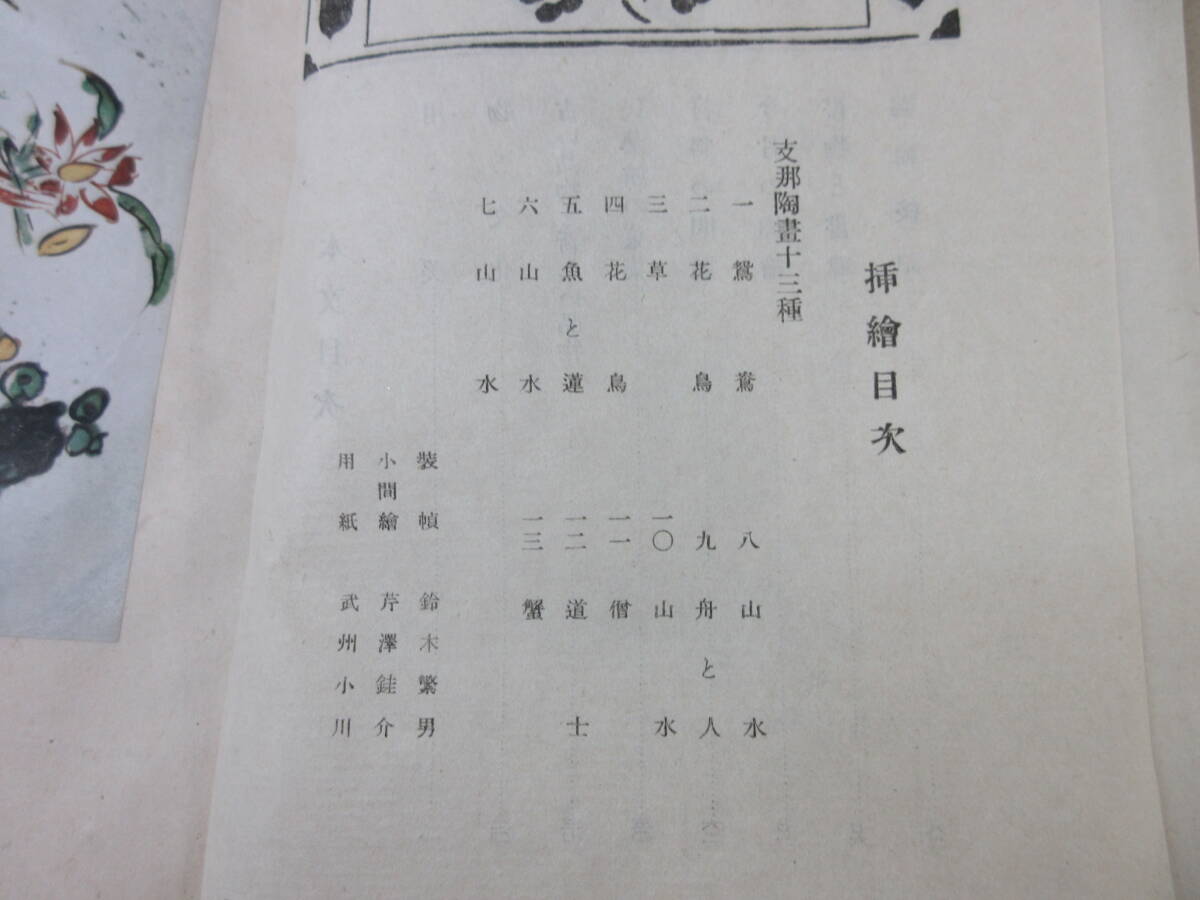 挿繪目次
支那陶畫十三種
一 鴛鴦
二 花鳥
三 草
四 花鳥
五 魚と蓮
六 山水
七 山水
八 山水
九 舟と人
一〇 山水
一一 僧
一二 道士
一三 蟹
裝幀 鈴木繁男
小間繪 芹澤銈介
用紙 武州小川
本文目次